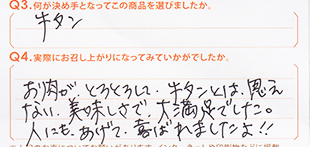 Q3.何が決め手となってこの商品を選びましたか。
牛タン
Q4.実際にお召し上がりになってみていかがでしたか。
お肉がとろとろして、牛タンとは、思え
ない、美味しさで、大満足でした。
人にも、あげて、喜ばれましたよ!!